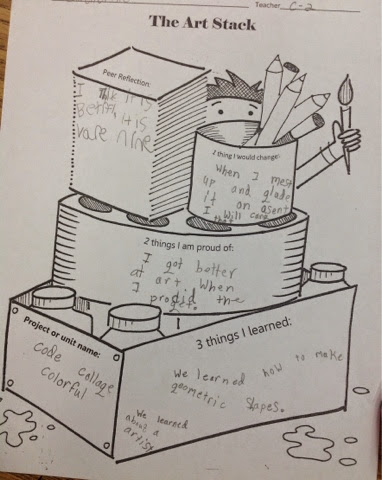 Teacher C-2
The Art Stack
Peer Reflection:
I thk it is
Betif, it is
vare nine
2 thing I would change:
When I mest
up and glade
it an asent
I will care
that
2 things I am proud of:
I got better
at art. When
I prodid the
projet.
Project or unit name:
Code collage
Colorful
3 things I learned:
We learned how to make
geometric shapes.
We learned
about a
artist